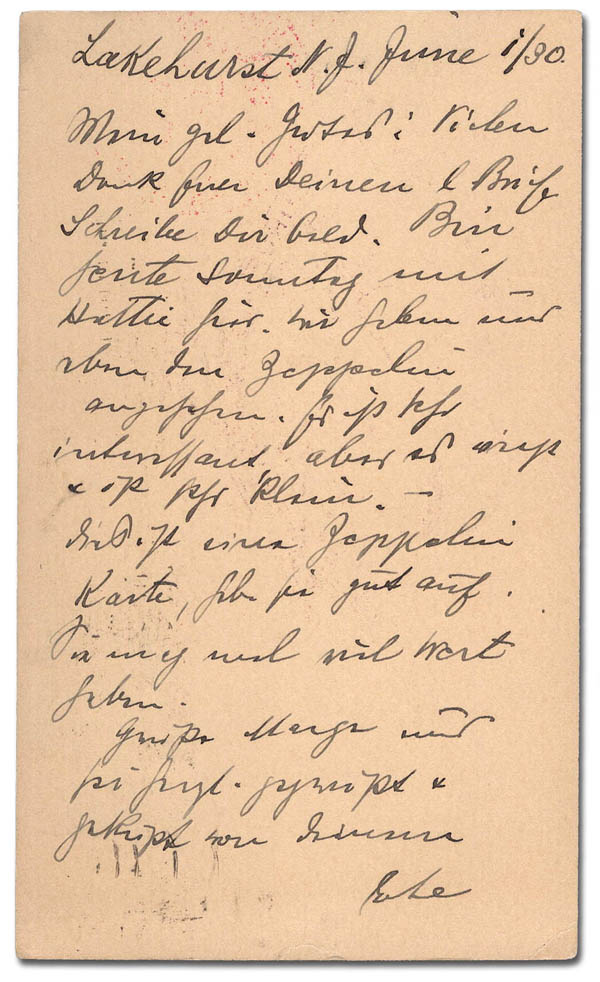 Lakehurst N.J. June 1/30.
Mein gel. Vielen
Dank fuer Deinen l. Brief
Schreibe Dir bald. Bin
heute Sonntag mit
Hattie hier. wir haben und
eben den Zeppelin
angesehen. Er ist sehr
interessant aber es
& ist sehr klein. –
dies ist eine Zeppelin
Karte, hebe sie gut auf.
Sie mag mal viel Wert
haben.
Grüße und
sei herzl. gegrüßt &
geküßt von Deinem